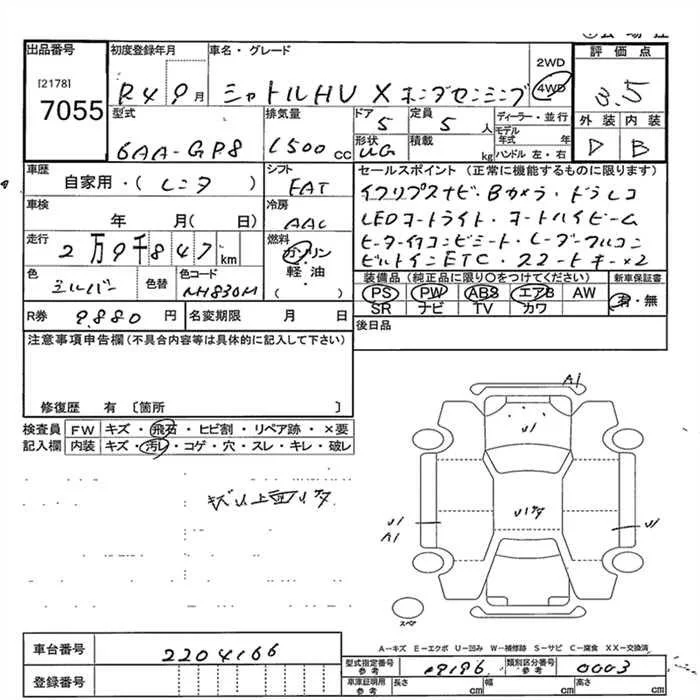 出品番号
[2178]
7055
初度登録年月
R4 9 月
車名・グレード
シャトルHV X ホンダセンシング
2WD
4WD
評価点
3.5
外装 内装
D B
型式
6AA-GP8
排気量
1500 cc
ドア
5
定員
5 人
形状
UG
積載
kg
ディーラー・並行
モデル年式 年
ハンドル 左・右
車歴
自家用・(レンタ)
シフト
FAT
車検
年 月(日)
冷房
AAC
走行
2万9千847 km
燃料
ガソリン
軽油
( )
色
シルバー
色替
色コード
NH830M
R券 9.880 円
名変期限 月 日
セールスポイント (正常に機能するものに限ります)
インタリプスナビ・Bカメラ・ドラレコ
LEDオートライト・オートハイビーム
ヒーターイコンビミート・レーダークルコン
ビルトインETC・スマートキー×2
装備品(純正品に限り○をつけてください)
PS PW ABS エアB AW
SR ナビ TV カワ
新車保証書
有・無
後日品
注意事項申告欄(不具合内容等は具体的に記入して下さい)
修復歴 有〔箇所 〕
検査員 FW キズ・飛石・ヒビ割・リペア跡・×要
記入欄 内装 キズ・汚レ・コゲ・穴・スレ・キレ・破レ
A1
U1
U1
A1
U1
スペア
A-キズ E-エクボ U-凹み W-補修跡 S-サビ C-腐食 XX-交換済
車台番号
2204166
登録番号
型式指定番号 参考
19196
類別区分番号 参考
0003
車庫証明用 参考
長さ cm
幅 cm
高さ cm